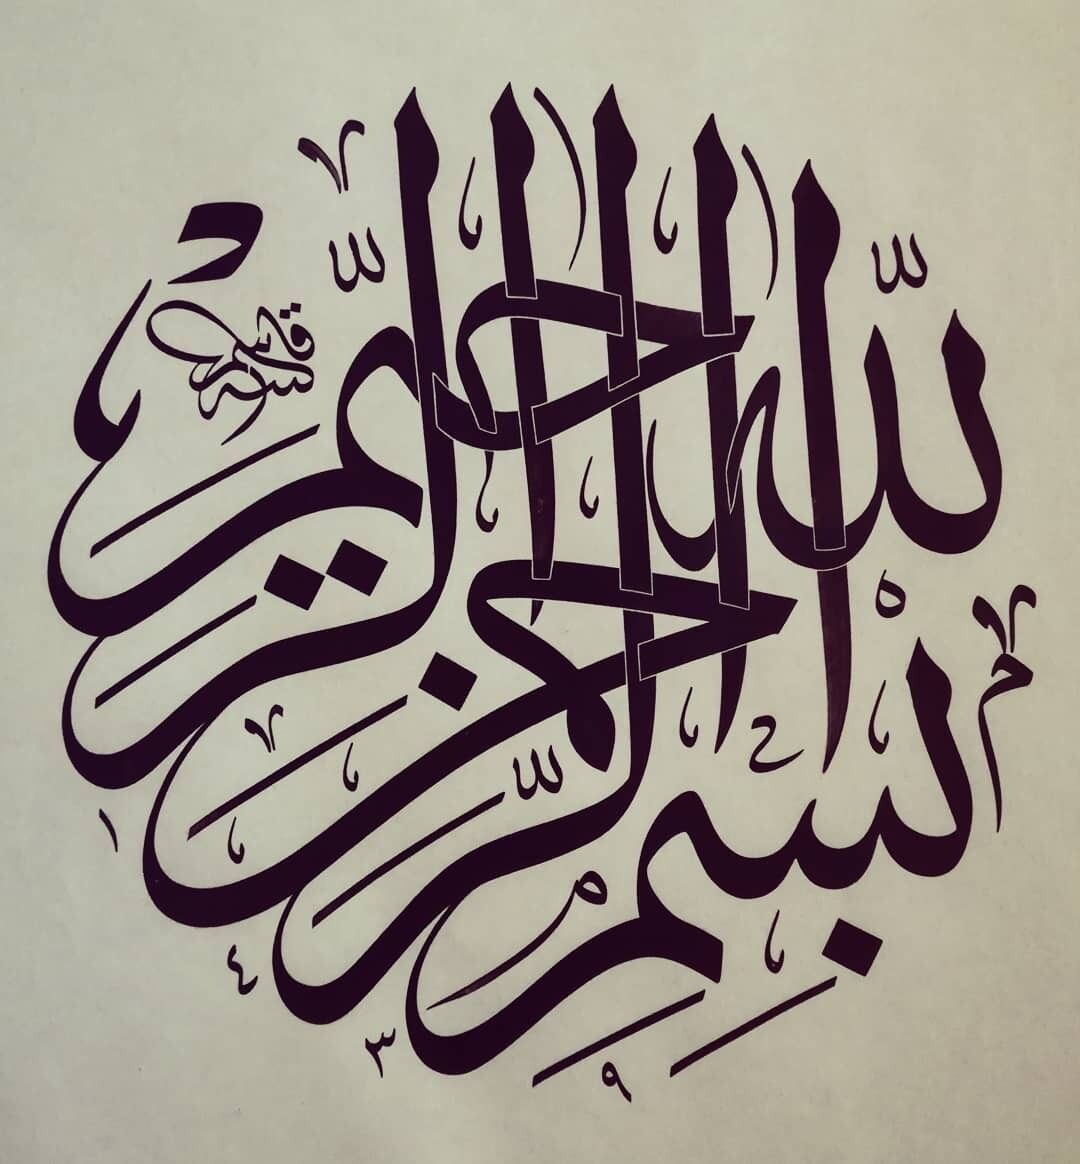 بسم الله الرحمن الرحيم
١٤٣٩